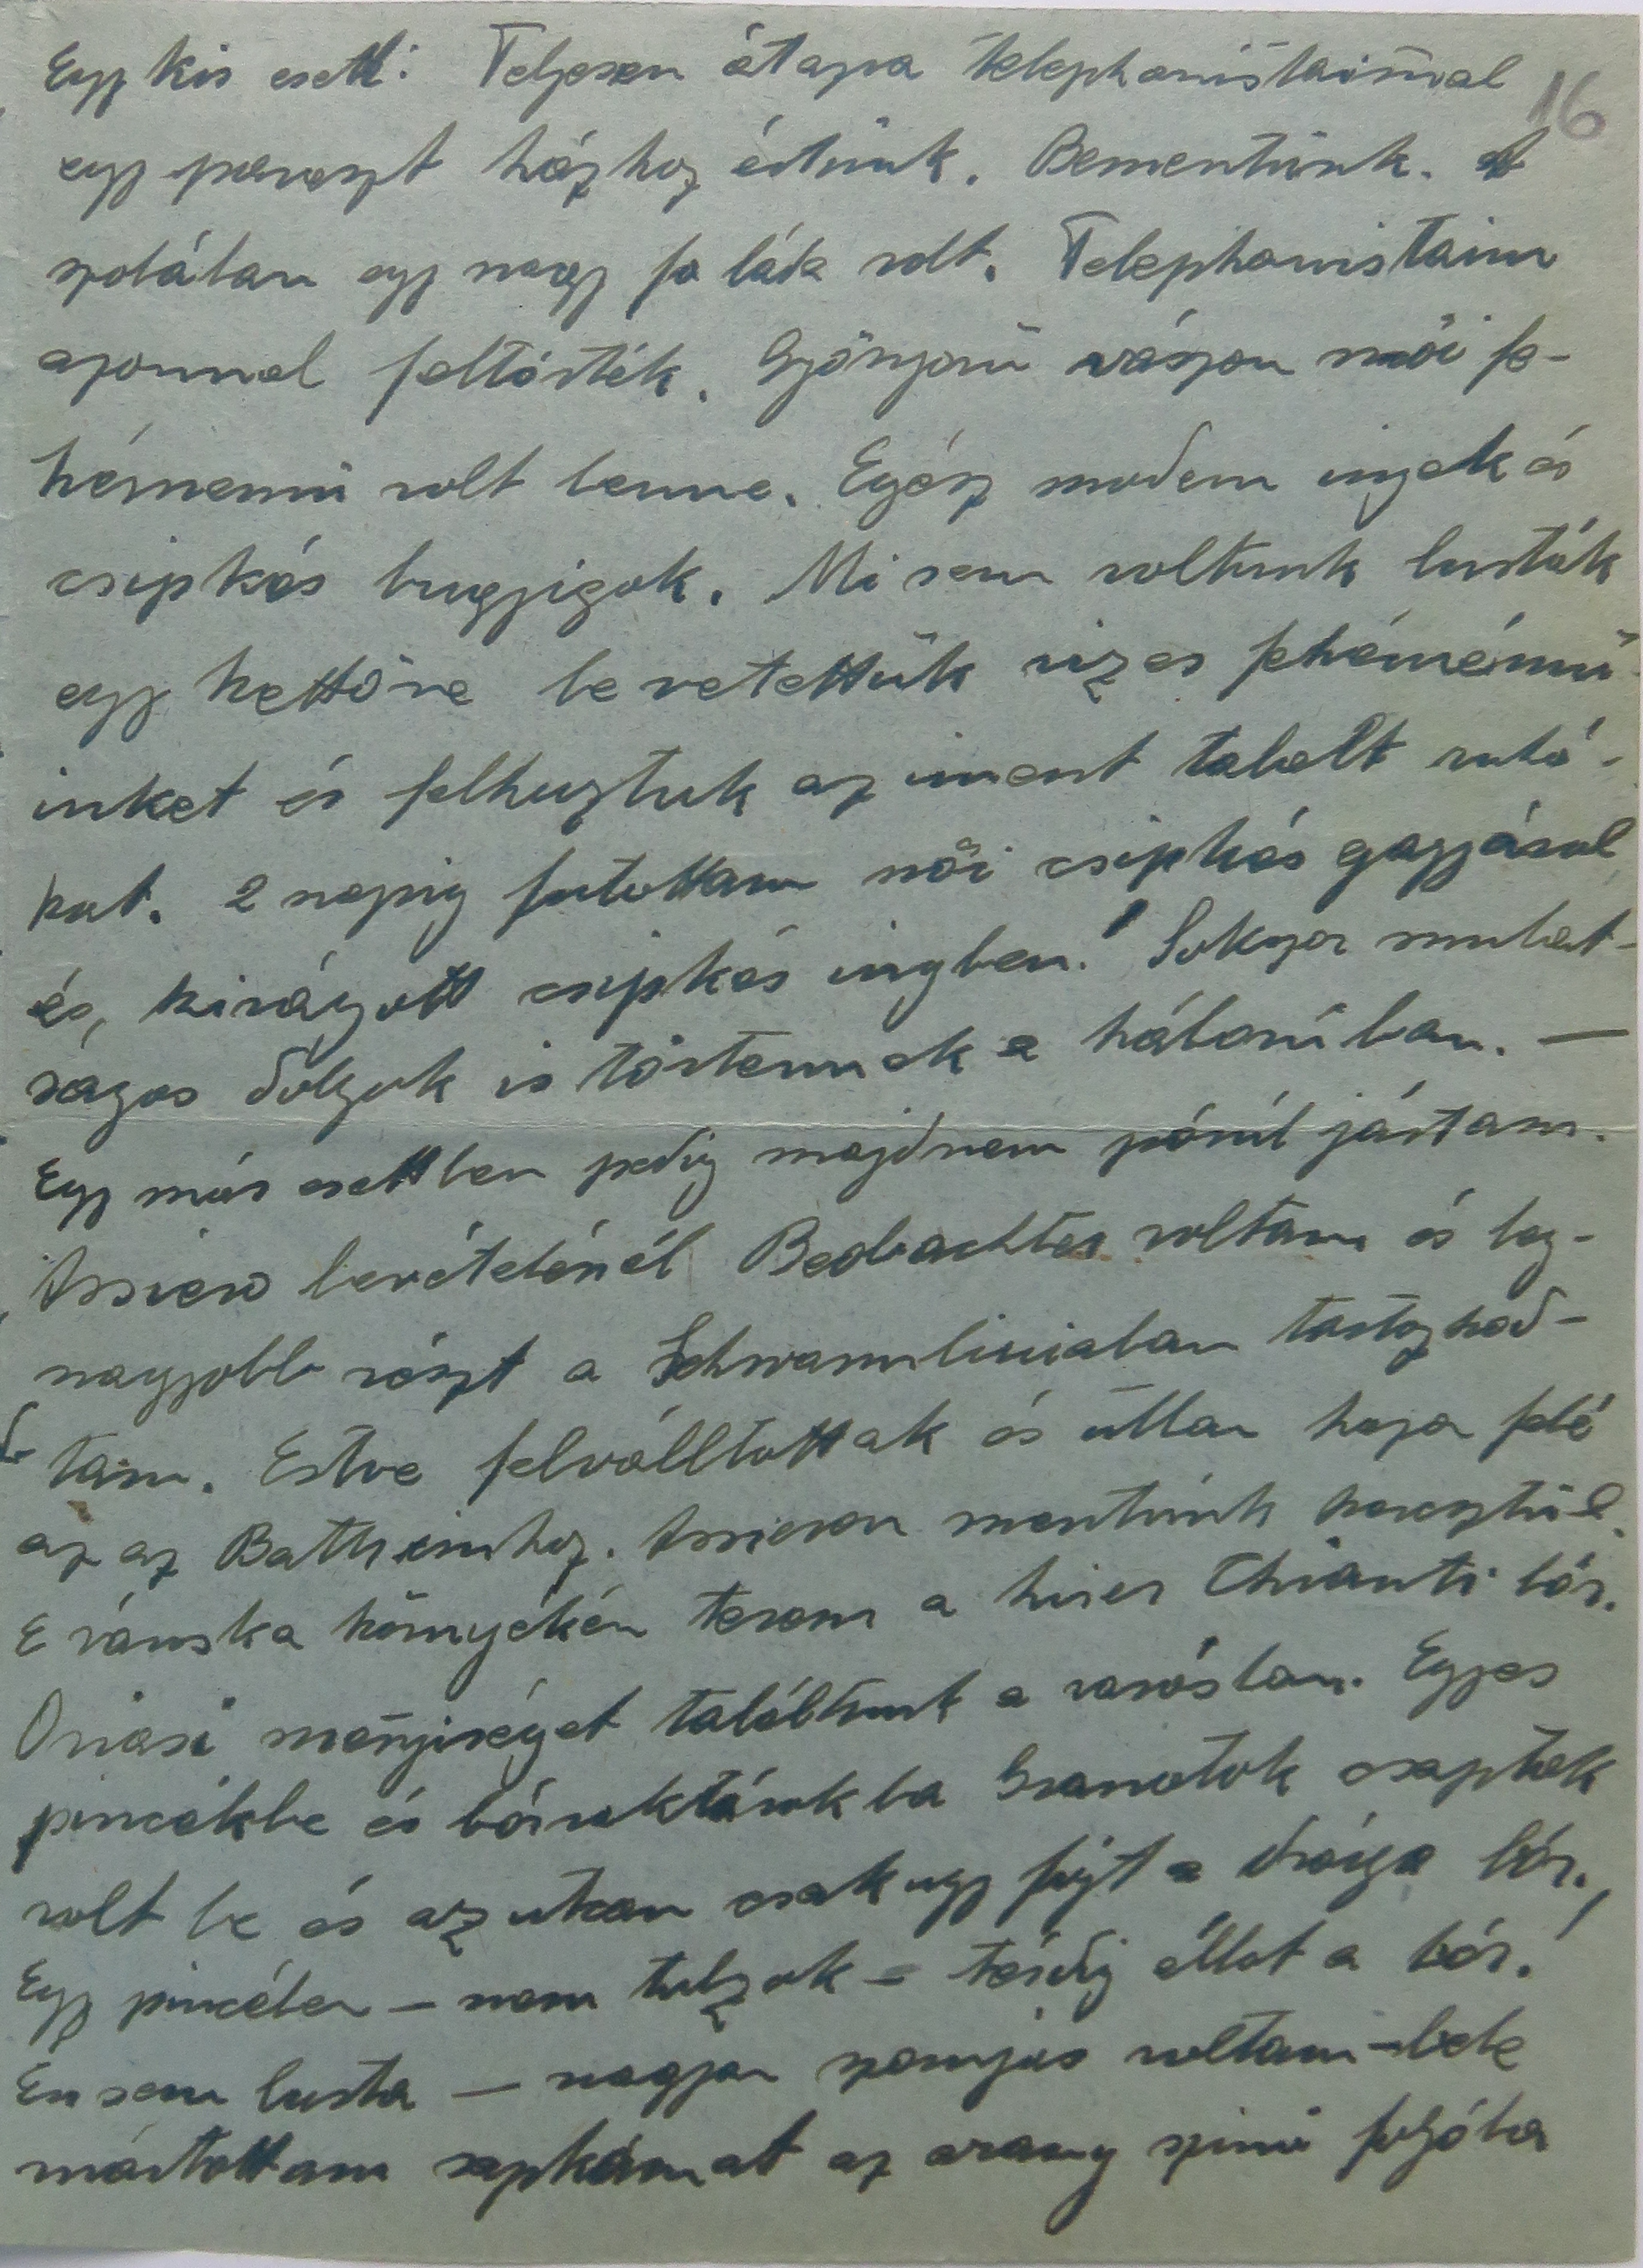 16
Egy kis esett: Teljesen átazva telephonistáimal
egy paraszt házhoz értünk. Bementünk. A
szobában egy nagy fa láda volt. Telephonistaim
azonnal feltörték. Gyönyörü vászon női fe-
hérnemü volt benne. Egész modern ingek és
csipkés bugyigok. Mi sem voltunk lusták
egy kettőre le vetettük vizes fehérnémü-
inket és felhuztuk az iment talált ruhá-
kat. 2 napig futottam női csipkés gagyával
és, kivágott csipkés ingben! Sokszor mulat-
ságos dolgok is történnek a háborúban. —
Egy más esettben pedig majdnem pórúl jártam.
Assiero bevételénél Beobachter voltam és leg-
nagyobb részt a Schwarmliniaban tartózkod-
tam. Estve felválltottak és útban haza felé
az az Batteriehoz. Assieron mentünk keresztül.
E városka környékén terem a hires Chianti bór.
Oriasi menyiséget találtunk a városban. Egyes
pincékbe és bórraktárokba Granatok csaptak
volt be és az utcan csak ugy fojt a drága bór.
Egy pincében – nem tulzok – térdig állot a bór!
En sem lusta — nagyon szomjas voltam – bele
mártottam sapkámat az arany szinü fojóba